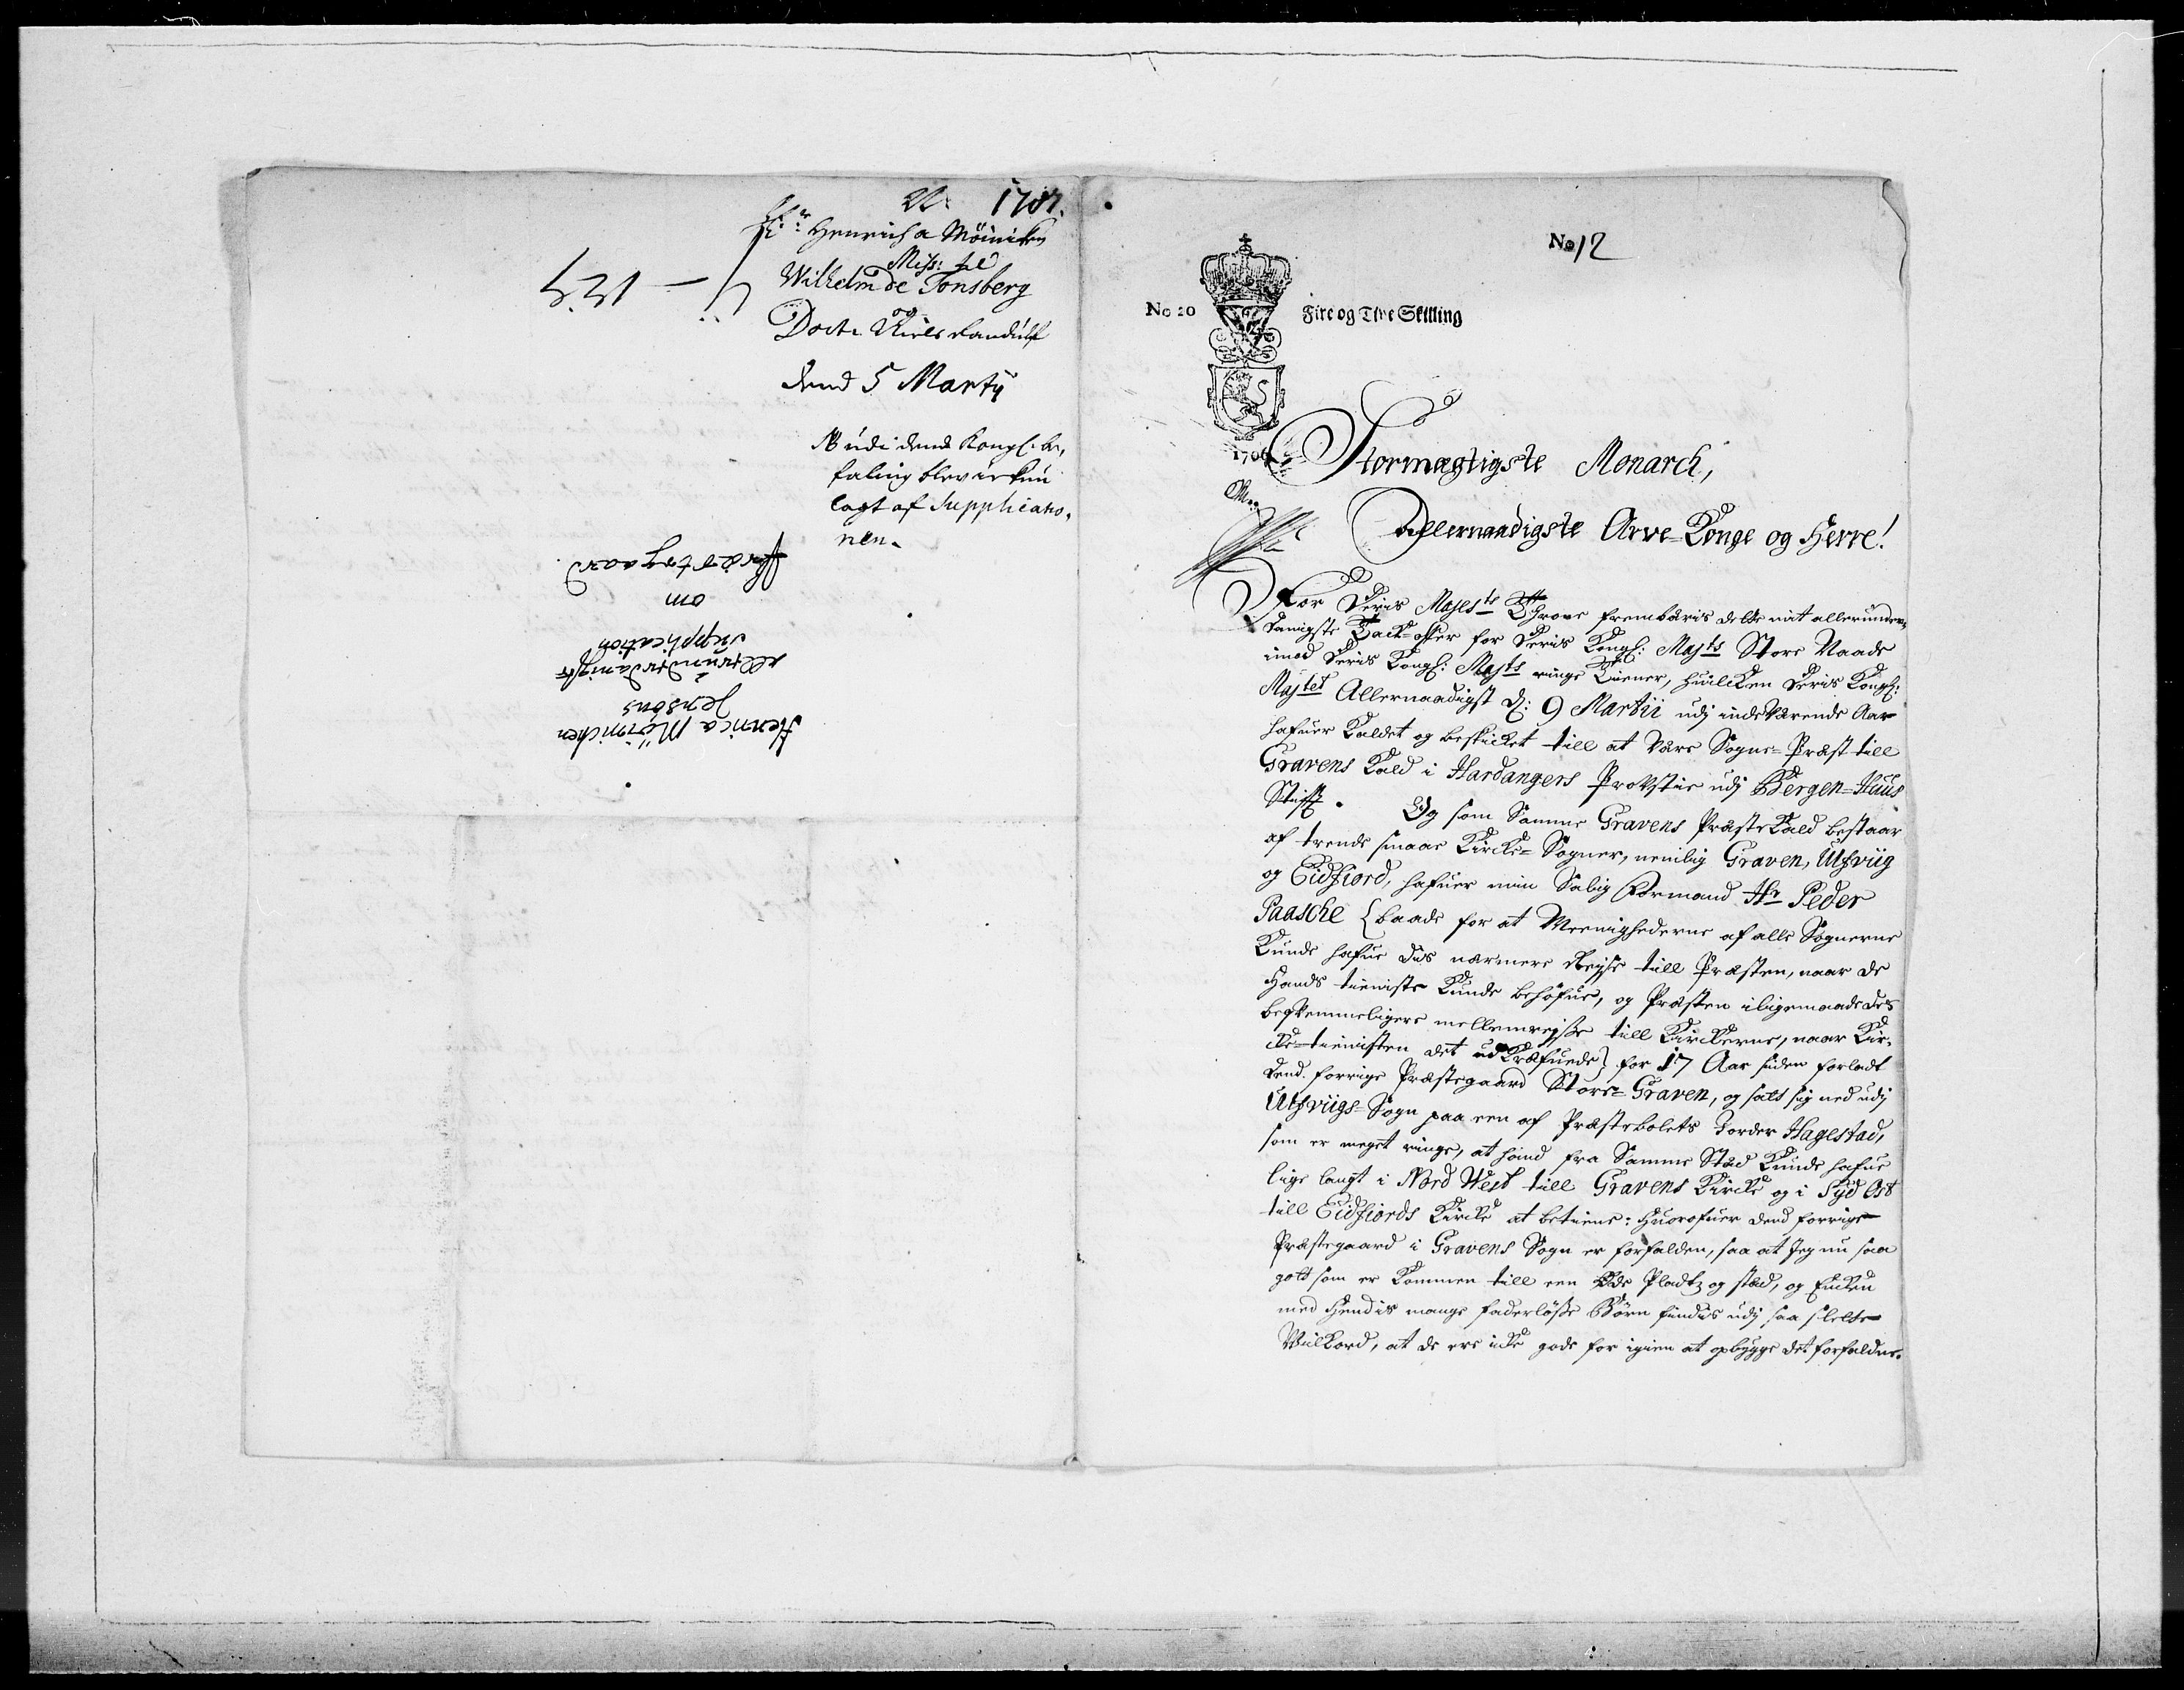 1707.
Hr: Henrich a Möinichen
Miss: til
Wilhelm de Tonsberg
og
Doct: Niels Randulf
dend 5 Martij
NB udi dend Kongl: be,
faling blev
lagt af Supplicatio,
nen.
Henric a Möinichen
Jensöns
allerunderdanigste
Supplication
om
No 12
No 20
Fire og Tive Skilling
1706
Stormægtigste Monarch,
Allernaadigste Arve-Konge og Herre!
For Deris Majests Throne frembæris dette mit allerunder-
danigste Tack-offer for Deris Kongl: Majts Store Naade
imod Deris Kongl: Majts ringe Tiener, huilcken Deris Kongl:
Majtet Allernaadigst d: 9 Martii udj indeværende Aar
hafuer Kaldet og beskicket till at være Sogne-Præst till
Gravens Kald i Hardangers Provstie udj Bergen-Huus
Stifft. Og som Samme Gravens Præste Kald bestaar
af trende smaae Kircke-Sogner, nemlig Graven, Ulfviig
og Eidfiord, hafuer min Salig Formand Hr Peder
Paasche {baade for at Meenighederne af alle Sognerne
Kunde hafue dis nærmere Reyse till Præsten, naar de
Hands tieniste Kunde behøfue, og Præsten iligemaade des
beqvemmeligere mellemreyse till Kirckerne, naar Kir-
cke-tienisten det udKræfuede} for 17 Aar siden forladt
dend forrige Præstegaard Store-Graven, og satt sig ned udj
Ulfviigs-Sogn paa een af Præstebolets Jorder Hagestad,
som er meget ringe, at hand fra Samme Stæd Kunde hafue
lige langt i Nord West till Gravens Kircke og i Syd Ost
till Eidfiords Kircke at betiene: Huorofuer dend forrige
Præstegaard i Gravens Sogn er forfalden, saa at Jeg nu saa
gott som er Kommen till een øde Pladtz og stæd, og Encken
med Hendis mange faderløse Børn findis udj saa slette
Vilkord, at de ere icke gode for igien at opbygge det forfaldne.